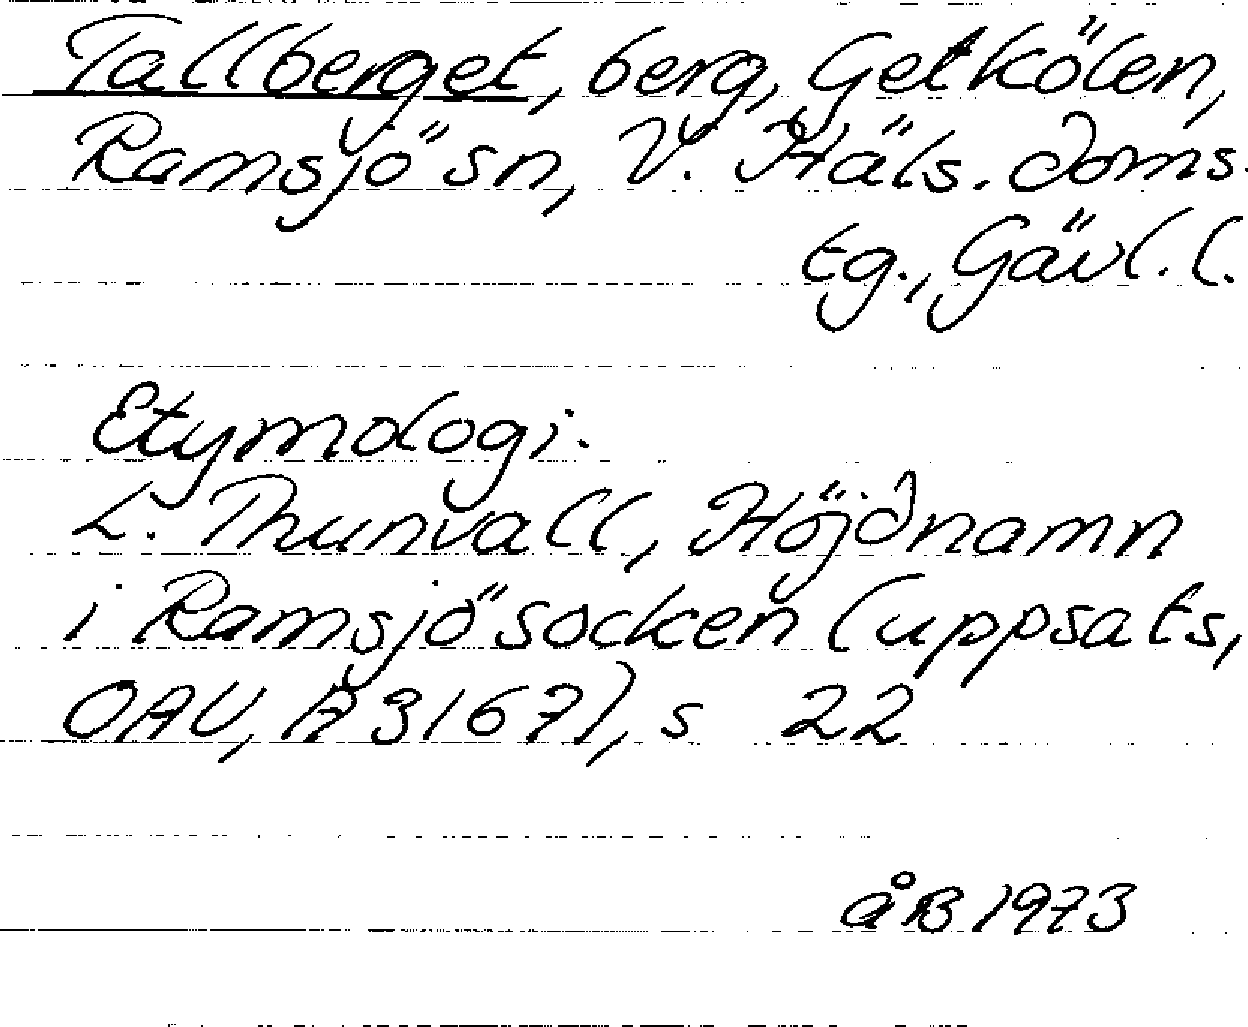 Tallberget, berg, Getkölen,
Ramsjö sn, V. Häls. doms.
tg., Gävl. l.
Etymologi.
L. Thunvall, Höjdnamn
i Ramsjö socken (uppsats,
OAU, A 3167), s 22
åB 1973